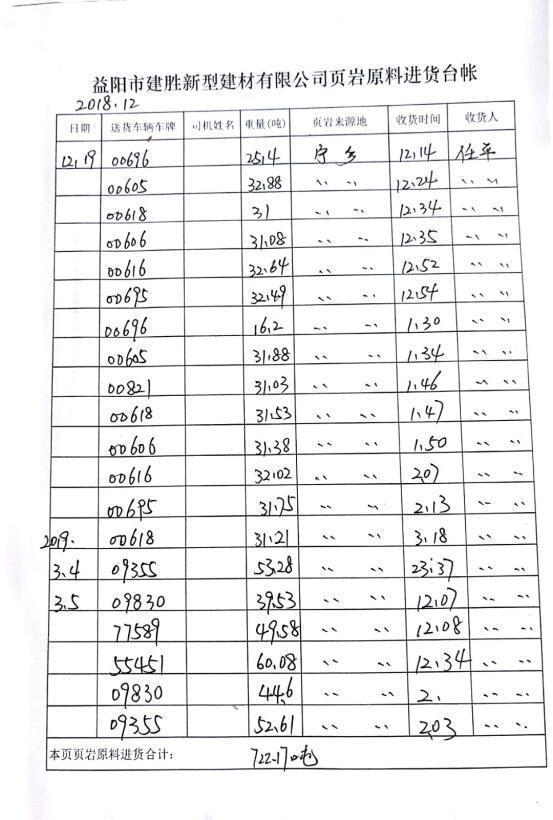 益阳市建胜新型建材有限公司页岩原料进货台帐
2018.12
日期 送货车辆车牌 司机姓名 重量(吨) 页岩来源地 收货时间 收货人
12.19 00696 25.4 宁乡 12.14 任平
00605 32.88 〃 〃 12.24 〃 〃
00618 31 〃 〃 12.34 〃 〃
00606 31.08 〃 〃 12.35 〃 〃
00616 32.64 〃 〃 12.52 〃 〃
00695 32.49 〃 〃 12.54 〃 〃
00696 16.2 〃 〃 1.30 〃 〃
00605 31.88 〃 〃 1.34 〃 〃
00821 31.03 〃 〃 1.46 〃 〃
00618 31.53 〃 〃 1.47 〃 〃
00606 31.38 〃 〃 1.50 〃 〃
00616 32.02 〃 〃 2.07 〃 〃
00695 31.75 〃 〃 2.13 〃 〃
2019. 00618 31.21 〃 〃 3.18 〃 〃
3.4 09355 53.28 〃 〃 23:37 〃 〃
3.5 09830 39.53 〃 〃 12.07 〃 〃
77589 49.58 〃 〃 12.08 〃 〃
55451 60.08 〃 〃 12.34 〃 〃
09830 44.6 〃 〃 2. 〃 〃
09355 52.61 〃 〃 2.03 〃 〃
本页页岩原料进货合计: 722.17吨